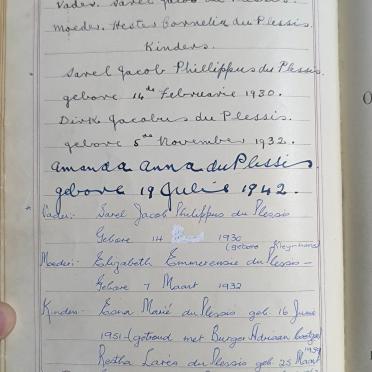 Vader. Sarel Jacob du Plessis.
Moeder. Hester Cornelia du Plessis.
Kinders.
Sarel Jacob Phillippus du Plessis.
gebore 14de Februarie 1930.
Dirk Jacobus du Plessis.
gebore 5de November 1932.
Amanda Anna du Plessis.
gebore 19 Julie 1942.
Vader: Sarel Jacob Philippus du Plessis
Gebore 14 1930
(gebore Kleynhans)
Moeder: Elizabeth Emmerensie du Plessis –
Gebore 7 Maart 1932
Kinders: Esna Marié du Plessis geb. 16 Junie
1951 – (getroud met Burger Adriaan
1959
Retha Larés du Plessis geb 25 Maart